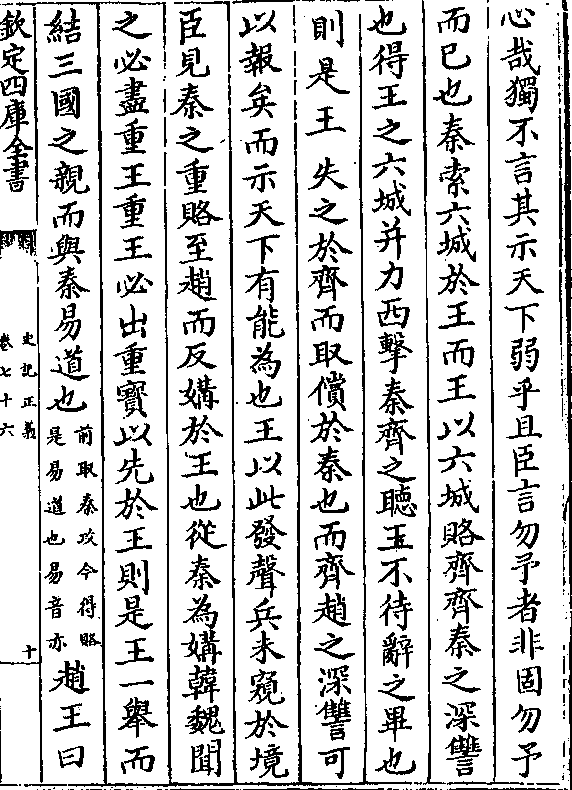 心哉獨不言其示天下弱乎且臣言勿予者非固勿予
而已也秦索六城於王而王以六城賂齊齊秦之深讐
也得王之六城并力西擊秦齊之聽王不待辭之畢也
則是王失之於齊而取償於秦也而齊趙之深讐可
以報矣而示天下有能為也王以此發聲兵未窺於境
臣見秦之重賂至趙而反媾於王也從秦為媾韓魏聞
之必盡重王重王必出重寶以先於王則是王一舉而
結三國之親而與秦易道也
前取秦攻今得賂
是易道也易音亦
趙王曰
欽定四庫全書
史記正義
卷七十六
十